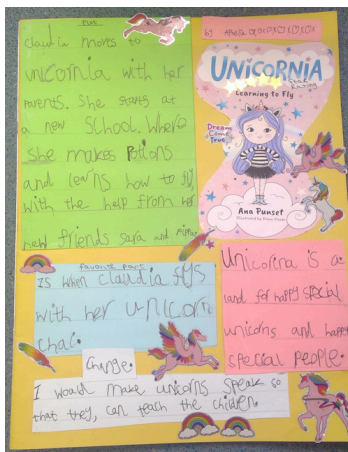 Plot
Claudia moves to
unicornia with her
parents. She starts at
a new School. Where
She makes Potions
and learns how to fly,
with the help from her
new friends Sara and
by
UNICORNIA
Learning to Fly
Dream
Come
True
Ana Punset
Illustrated by Diana Vicedo
favourite part
Is when claudia flys
with her unicorn
chai.
Unicorina is a
land for happy special
unicorns and happy
special people.
Change.
I would make unicorns speak so
that they, can teach the children.